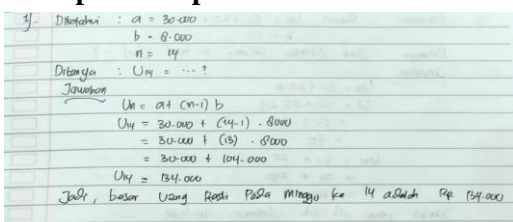 1). Diketahui : a = 30.000
b = 8.000
n = 14
Ditanya : U14 = ... ?
Jawaban
Un = a + (n-1) b
U14 = 30.000 + (14-1) . 8000
= 30.000 + (13) . 8000
= 30.000 + 104.000
U14 = 134.000
Jadi, besar uang Rosti Pada Minggu ke 14 adalah Rp. 134.000